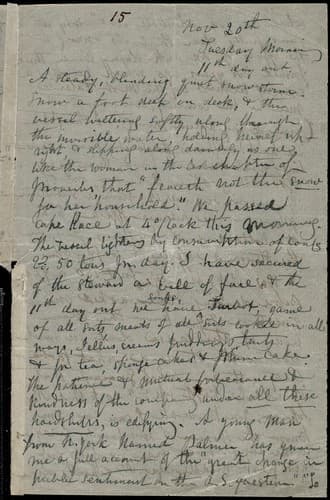 15
Nov 20th
Tuesday Morning
11th day out.
A steady, blinding, quiet snow storm.
Snow a foot deep on deck, & the
vessel softly along through
the invisible water, holding herself up-
right & slipping along as one
like the woman in the last chapter of
Proverbs that "feareth not the snow
for her household." We passed
Cape Race at 4 o'clock this morning.
The vessel lightens by consumption of coals
50 tons per day. I have secured
of the Steward a Bill of fare & the
11th day out we have soups, Turbot, game
of all sorts meats of all sorts cooked in all
ways, Jellies, creams puddings tarts
& for tea, sponge cakes & Johnny Cake.
The patience & mutual forbearance &
kindness of the company under all these
hardships, is edifying. A young man
from N. York named Palmer has given
me a full account of the "great change in
public sentiment on the A. S. question." "So